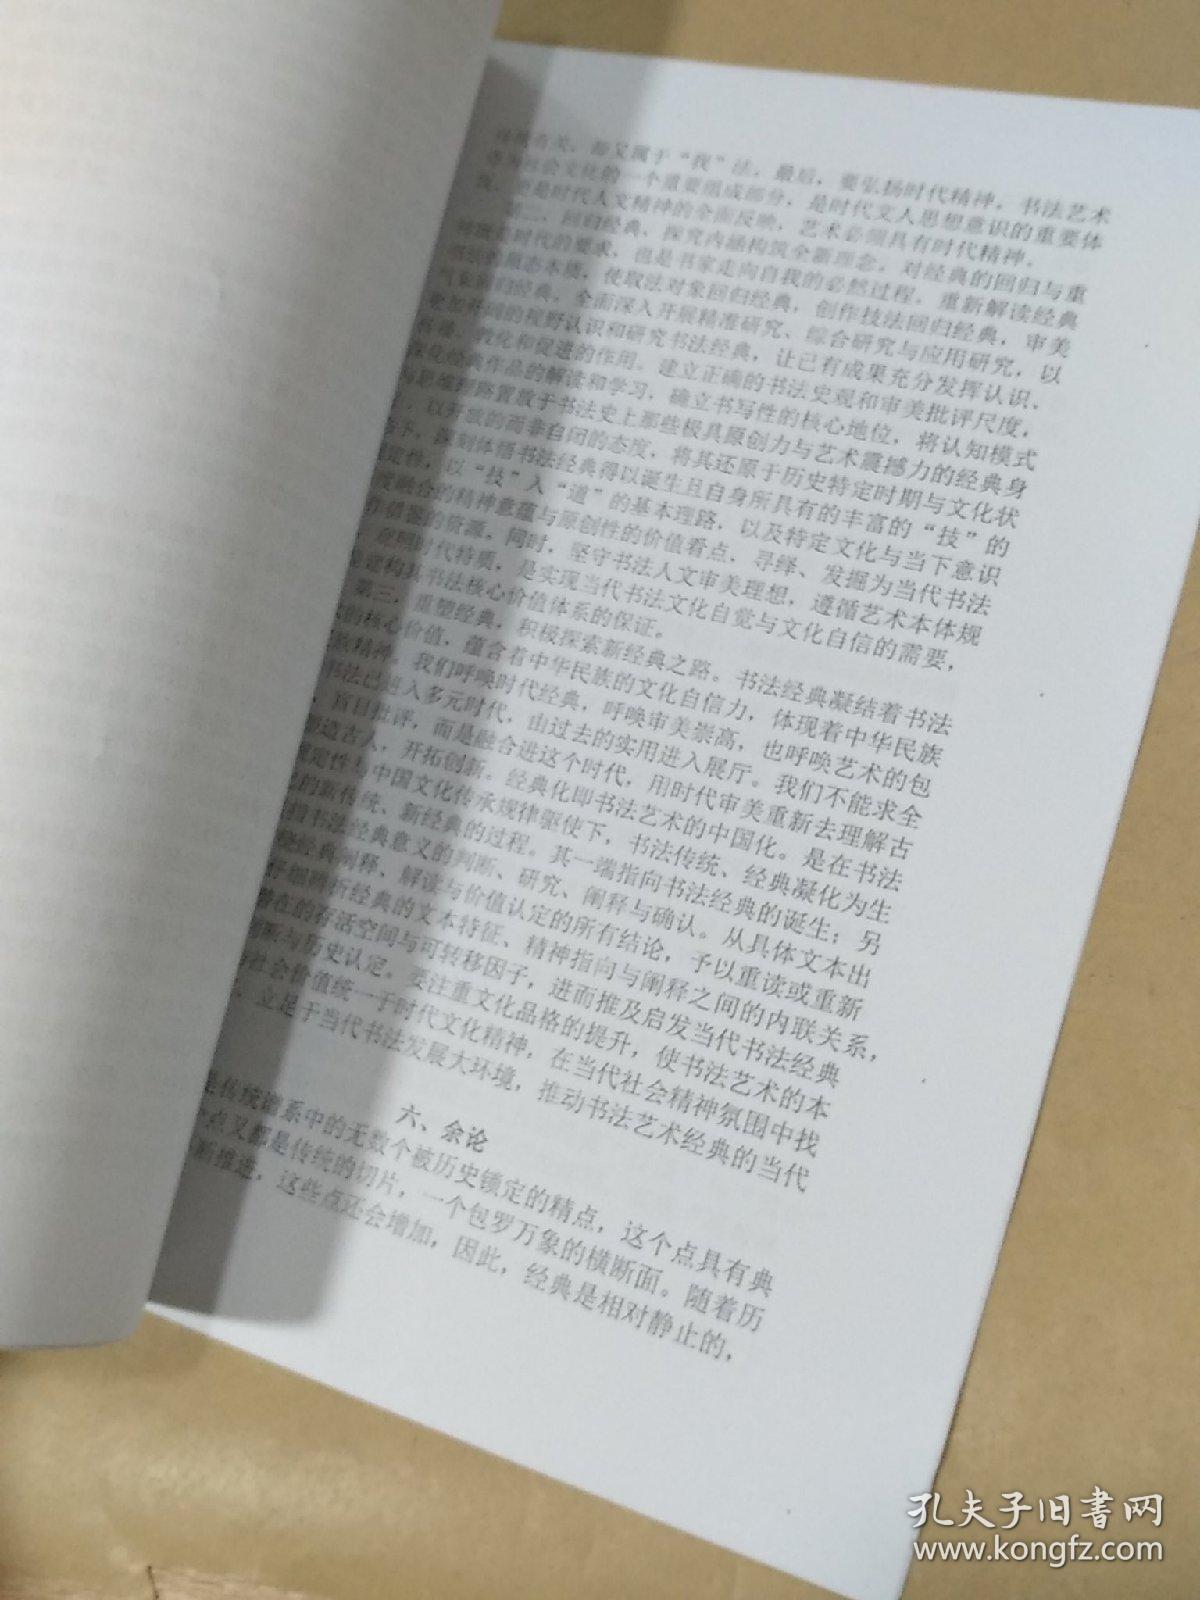 有关，却又属于“我”法。最后，要弘扬时代精神。书法艺术
社会文化的一个重要组成部分，是时代文人思想意识的重要体
更是时代人文精神的全面反映，艺术必须具有时代精神。
第二，回归经典，探究内涵构筑全新理念。对经典的回归与重
时代的要求，也是书家走向自我的必然过程。重新解读经典
原态本质，使取法对象回归经典，创作技法回归经典，审美
回归经典。全面深入开展精准研究、综合研究与应用研究，以
更加开阔的视野认识和研究书法经典，让已有成果充分发挥认识、
教化和促进的作用。建立正确的书法史观和审美批评尺度，
深化经典作品的解读和学习，确立书写性的核心地位，将认知模式
与思维理路置放于书法史上那些极具原创力与艺术震撼力的经典身
以开放的而非自闭的态度，将其还原于历史特定时期与文化状
下，深刻体悟书法经典得以诞生且自身所具有的丰富的“技”的
定性，以“技”入“道”的基本理路，以及特定文化与当下意识
度融合的精神意蕴与原创性的价值看点，寻绎、发掘为当代书法
借鉴的资源。同时，坚守书法人文审美理想，遵循艺术本体规
时代特质，是实现当代书法文化自觉与文化自信的需要，
建构其书法核心价值体系的保证。
第三，重塑经典，积极探索新经典之路。书法经典凝结着书法
的核心价值，蕴含着中华民族的文化自信力，体现着中华民族
精神。我们呼唤时代经典，呼唤审美崇高，也呼唤艺术的包
书法已进入多元时代，由过去的实用进入展厅。我们不能求全
盲目批评，而是融合进这个时代，用时代审美重新去理解古
造古人，开拓创新。经典化即书法艺术的中国化。是在书法
定性与中国文化传承规律驱使下，书法传统、经典凝化为生
的新传统、新经典的过程。其一端指向书法经典的诞生；另
指书法经典意义的判断、研究、阐释与确认。从具体文本出
经典阐释、解读与价值认定的所有结论，予以重读或重新
仔细辨析经典的文本特征、精神指向与阐释之间的内联关系，
潜在的存活空间与可转移因子，进而推及启发当代书法经典
判断与历史认定。要注重文化品格的提升，使书法艺术的本
社会价值统一于时代文化精神，在当代社会精神氛围中找
立足于当代书法发展大环境，推动书法艺术经典的当代
六、余论
是传统谱系中的无数个被历史锁定的精点，这个点具有典
个点又都是传统的切片，一个包罗万象的横断面。随着历
断推进，这些点还会增加，因此，经典是相对静止的，
孔夫子旧书网
www.kongfz.com